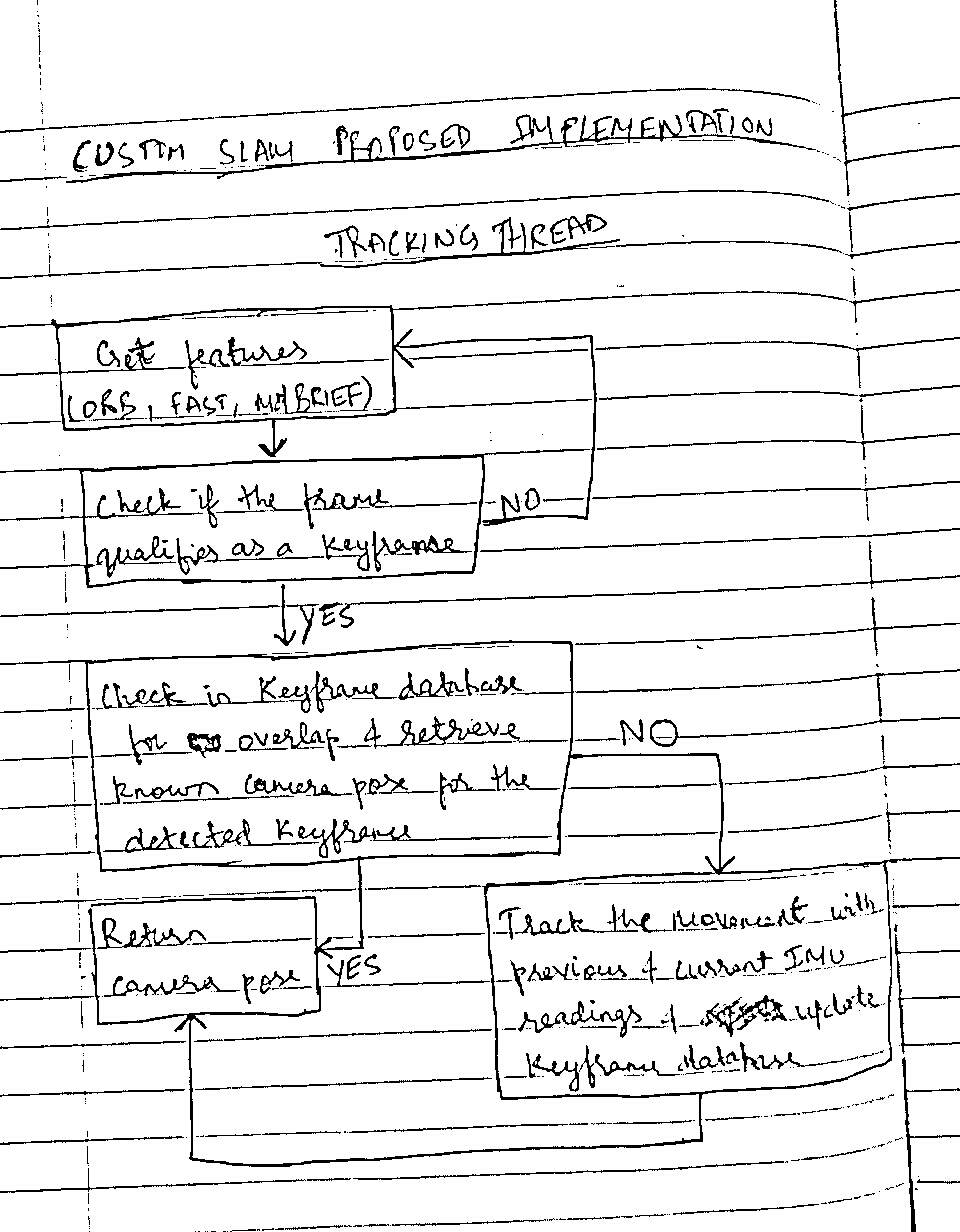 CUSTOM SLAM PROPOSED IMPLEMENTATION
TRACKING THREAD
Get features
(ORB, FAST, BRIEF)
Check if the frame
NO
qualifies as a Keyframe
YES
Check in Keyframe database
for overlap & retrieve
NO
known camera pose for the
detected Keyframe
Return
camera pose
YES
Track the movement with
previous & current IMU
readings & update
Keyframe database